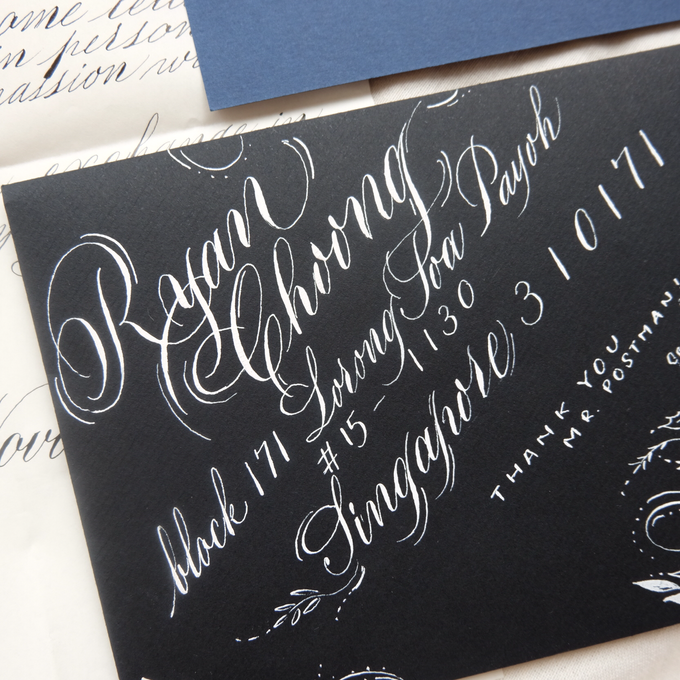 ome lett
in person
passion w
exchange in
Ryan
Choong
block 171 Lorong Toa Payoh
#15-1130
Singapore 310171
THANK YOU
MR. POSTMAN!